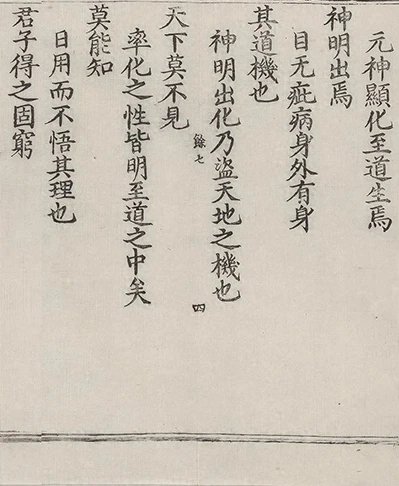 元神顯化至道生焉
神明出焉
目无疵病身外有身
其道機也
神明出化乃盜天地之機也
餘七
四
天下莫不見
率化之性皆明至道之中矣
莫能知
日用而不悟其理也
君子得之固窮